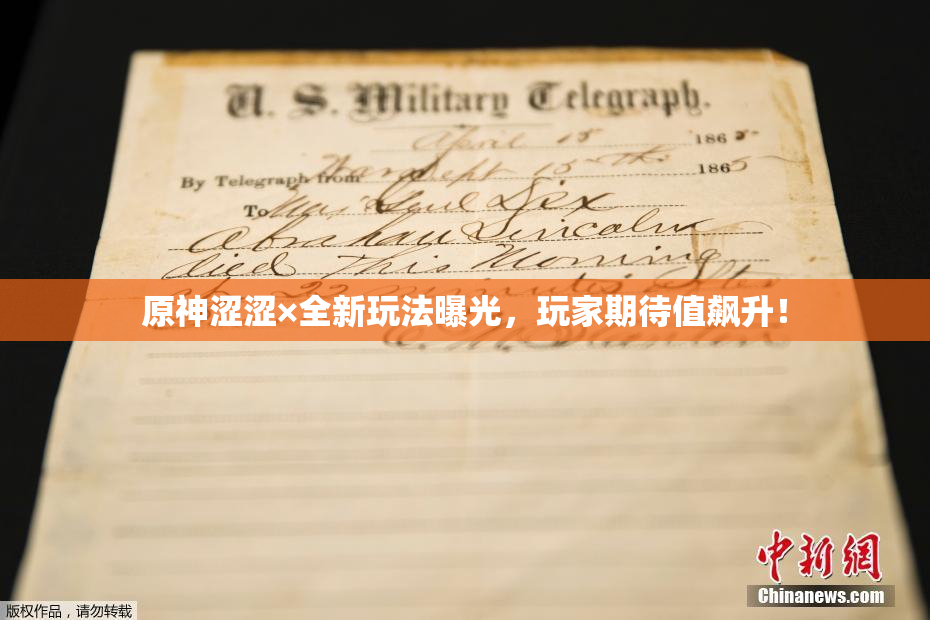 U. S. Military Telegraph.
April 15 1865
By Telegraph from War Dept 15th 1865
To Maj Genl Dix
Abraham Lincoln
died This Morning
at 22 minutes after
原神涩涩×全新玩法曝光，玩家期待值飙升！
E. M. Stanton
中新網
Chinanews.com
版权作品，请勿转载